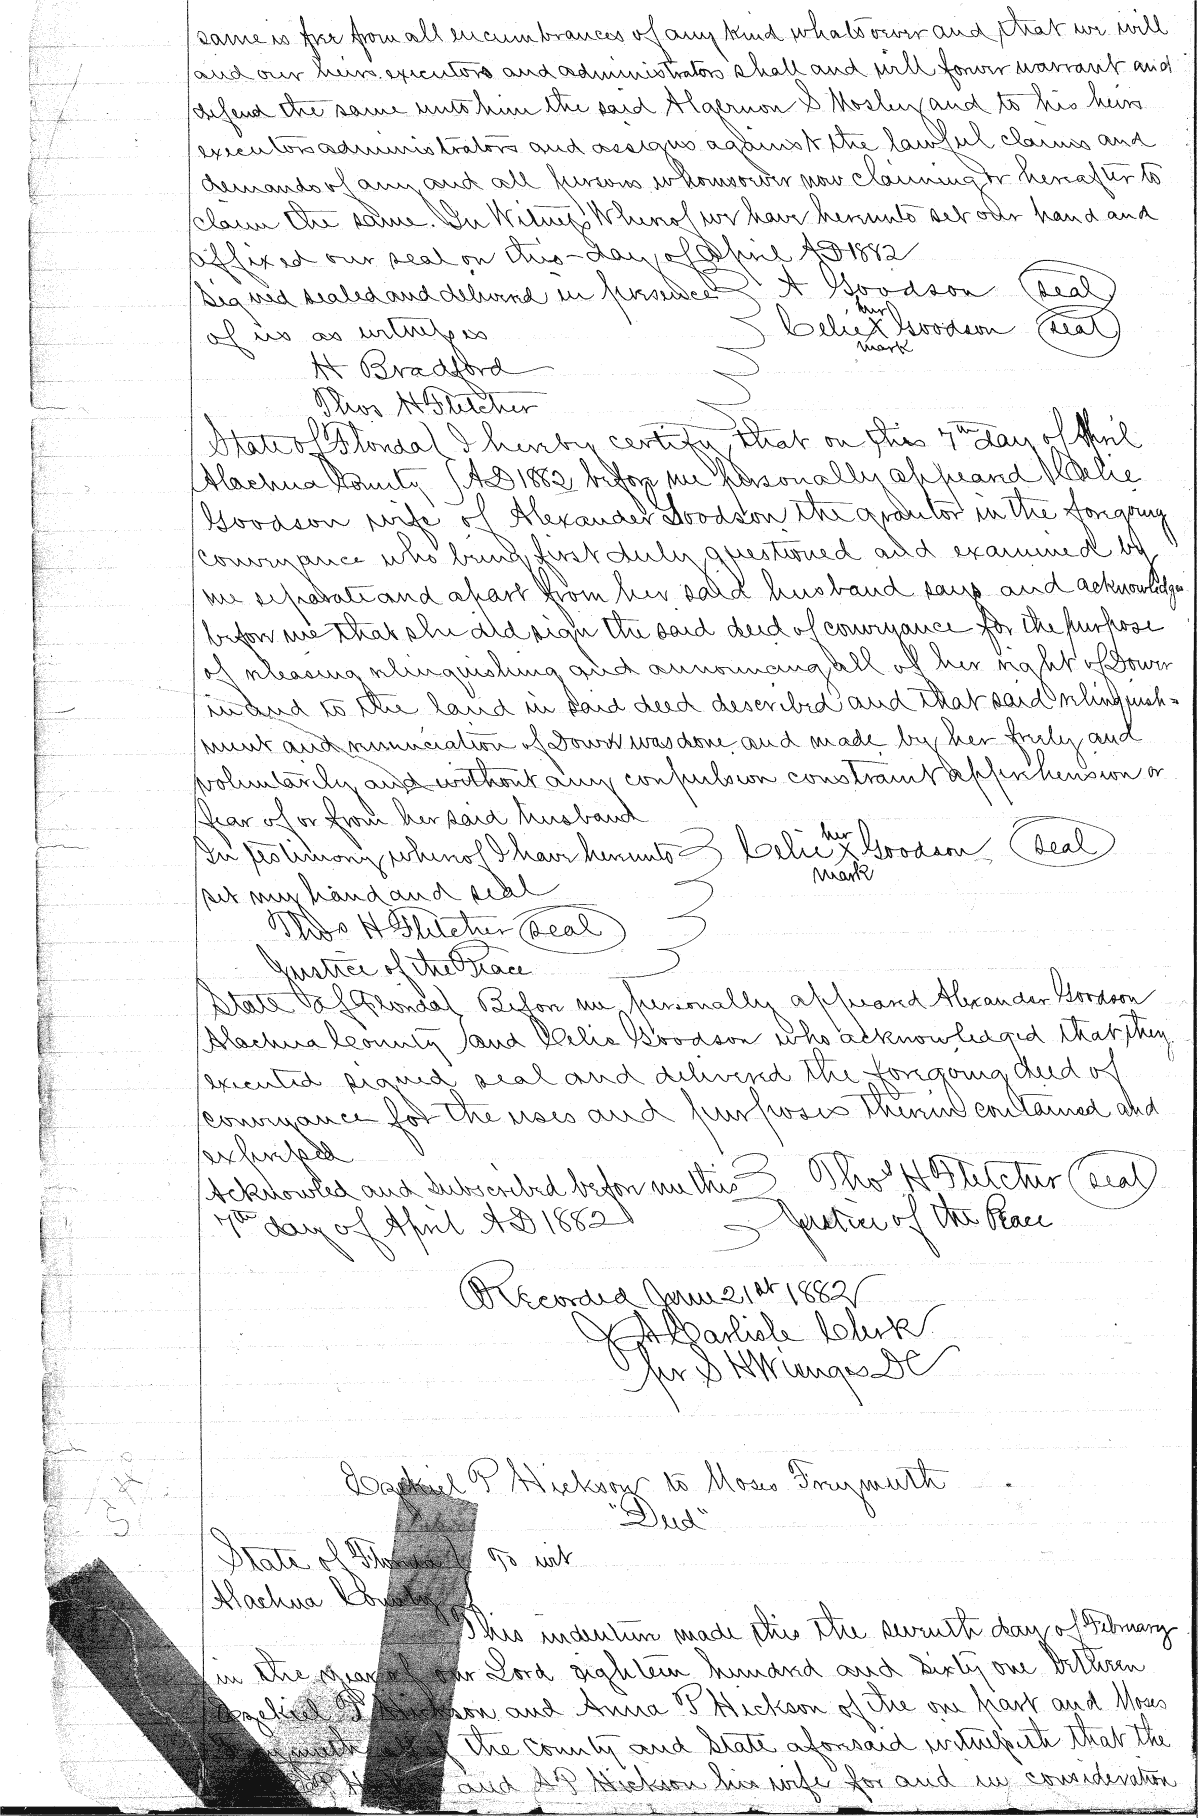 same is free from all encumbrances of any kind whatsoever and that we will
and our heirs executors and administrators shall and will forever warrant and
defend the same unto him the said Algernon S Mosley and to his heirs
executors administrators and assigns against the lawful claims and
demands of any and all persons whomsoever now claiming or hereafter to
claim the same. In Witness Whereof we have hereunto set our hand and
affixed our seal on this - day of April AD 1882
Signed sealed and delivered in presence A Goodson seal
of us as witnesses Celie her X mark Goodson seal
H Bradford
Thos H Fletcher
State of Florida I hereby certify that on this 7th day of April
Alachua County AD 1882 before me personally appeared Celie
Goodson wife of Alexander Goodson the grantor in the foregoing
conveyance who being first duly questioned and examined by
me separate and apart from her said husband says and acknowledges
before me that she did sign the said deed of conveyance for the purpose
of releasing relinquishing and announcing all of her right of Dower
in and to the land in said deed described and that said relinquish=
ment and renunciation of Dower was done and made by her freely and
voluntarily and without any compulsion constraint apprehension or
fear of or from her said husband
In testimony whereof I have hereunto Celie her X mark Goodson seal
set my hand and seal
Thos H Fletcher seal
Justice of the Peace
State of Florida Before me personally appeared Alexander Goodson
Alachua County and Celie Goodson who acknowledged that they
executed signed seal and delivered the foregoing deed of
conveyance for the uses and purposes therein contained and
expressed
Acknowled and subscribed before me this Thos H Fletcher seal
7th day of April AD 1882 Justice of the Peace
Recorded June 21st 1882
J A Carlisle Clerk
per S H Wienges DC
Ezekiel P Hickson to Moses Freymuth
"Deed"
State of Florida To wit
Alachua County
This indenture made this the seventh day of February
in the year of our Lord eighteen hundred and sixty one between
Ezekiel P Hickson and Anna P Hickson of the one part and Moses
Freymuth all of the County and State aforesaid witnesseth that the
and A P Hickson his wife for and in consideration